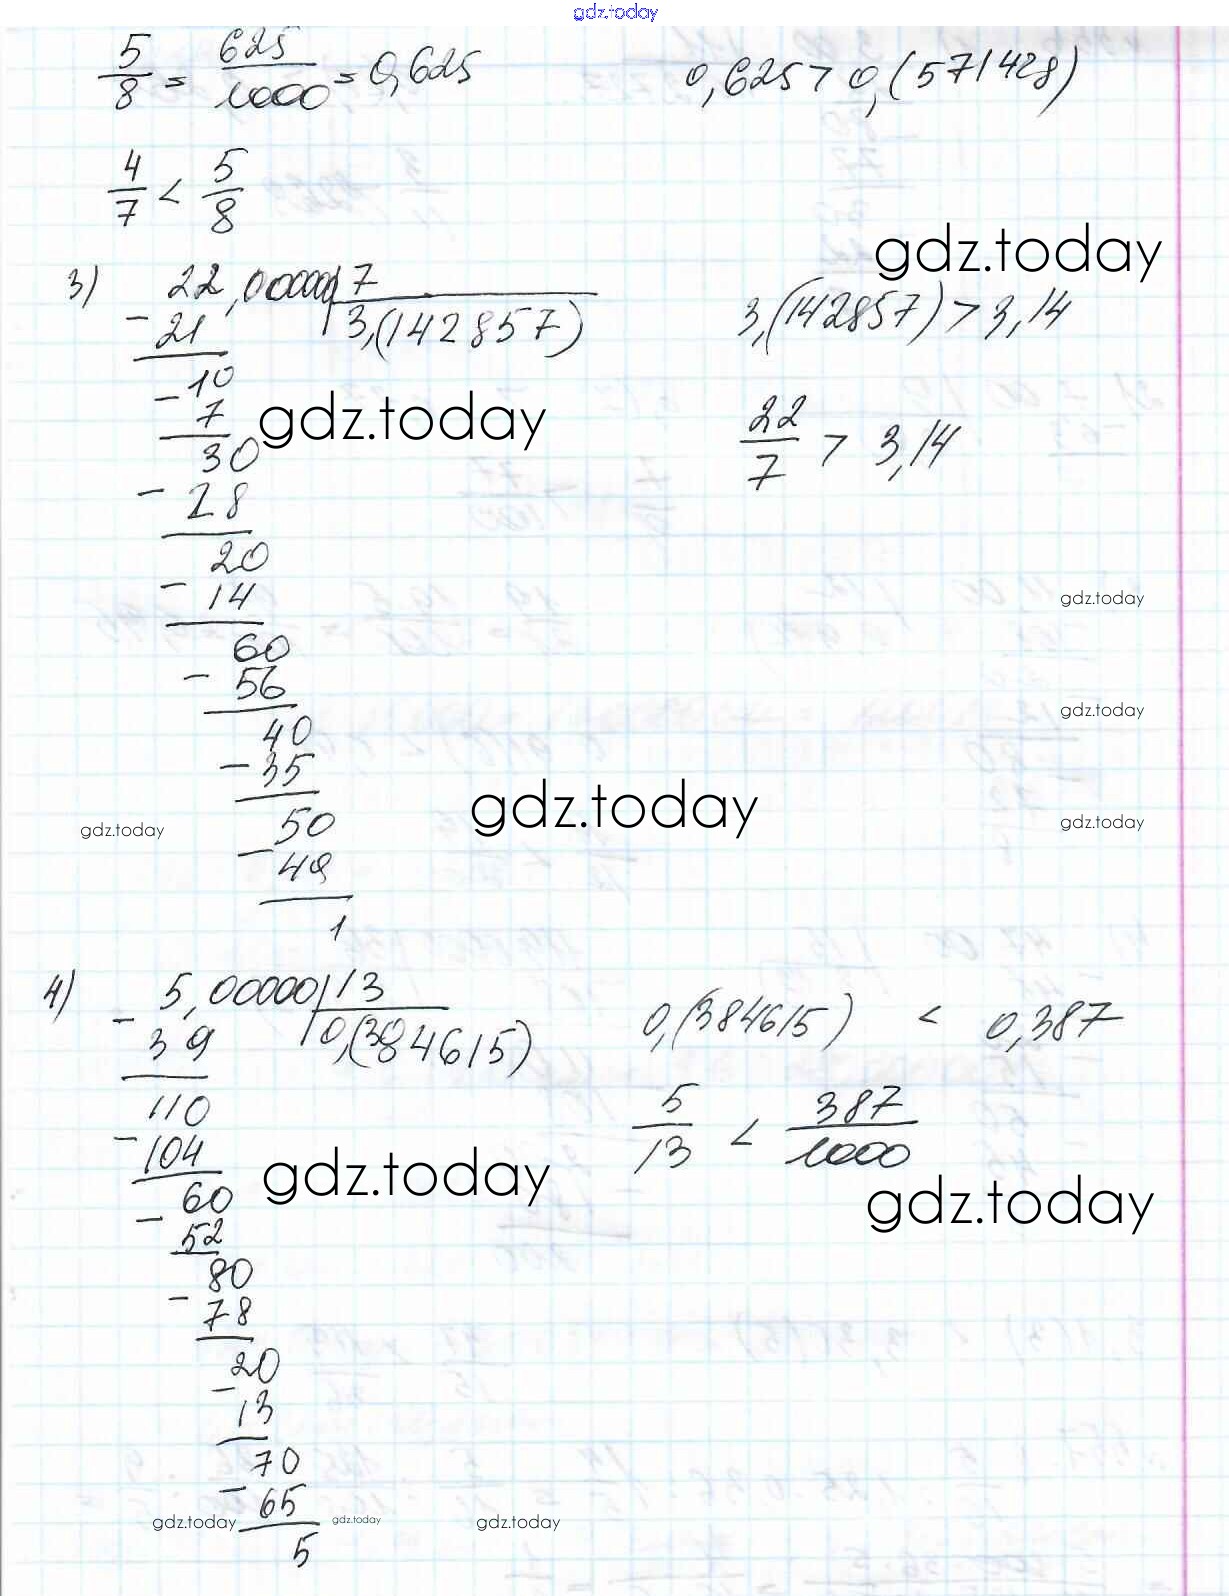 gdz.today
5/8 = 625/1000 = 0,625
0,625 > 0,(571428)
4/7 < 5/8
gdz.today
3) 22,00000 | 7
- 21
3,(142857)
3,(142857) > 3,14
- 10
7
gdz.today
22/7 > 3,14
30
- 28
20
- 14
gdz.today
60
- 56
gdz.today
40
- 35
gdz.today
50
gdz.today
gdz.today
- 49
1
4) 5,00000 | 13
- 39
0,(384615)
0,(384615) < 0,387
110
- 104
5/13 < 387/1000
gdz.today
gdz.today
60
- 52
80
- 78
20
- 13
70
- 65
gdz.today
gdz.today
gdz.today
5